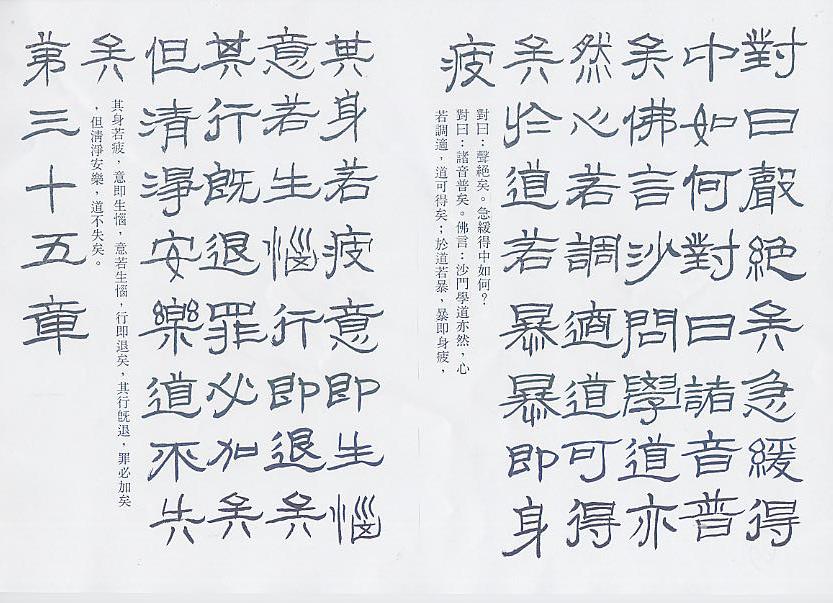 對曰聲絕矣急緩得
中如何對曰諸音普
矣佛言沙問學道亦
然心若調適道可得
矣於道若暴暴即身
疲
對曰：聲絕矣。急緩得中如何？
對曰：諸音普矣。佛言：沙門學道亦然，心
若調適，道可得矣；於道若暴，暴即身疲，
其身若疲意即生惱
意若生惱行即退矣
其行既退罪必加矣
但清淨安樂道不失
矣
其身若疲，意即生惱，意若生惱，行即退矣，其行既退，罪必加矣
，但清淨安樂，道不失矣。
第三十五章